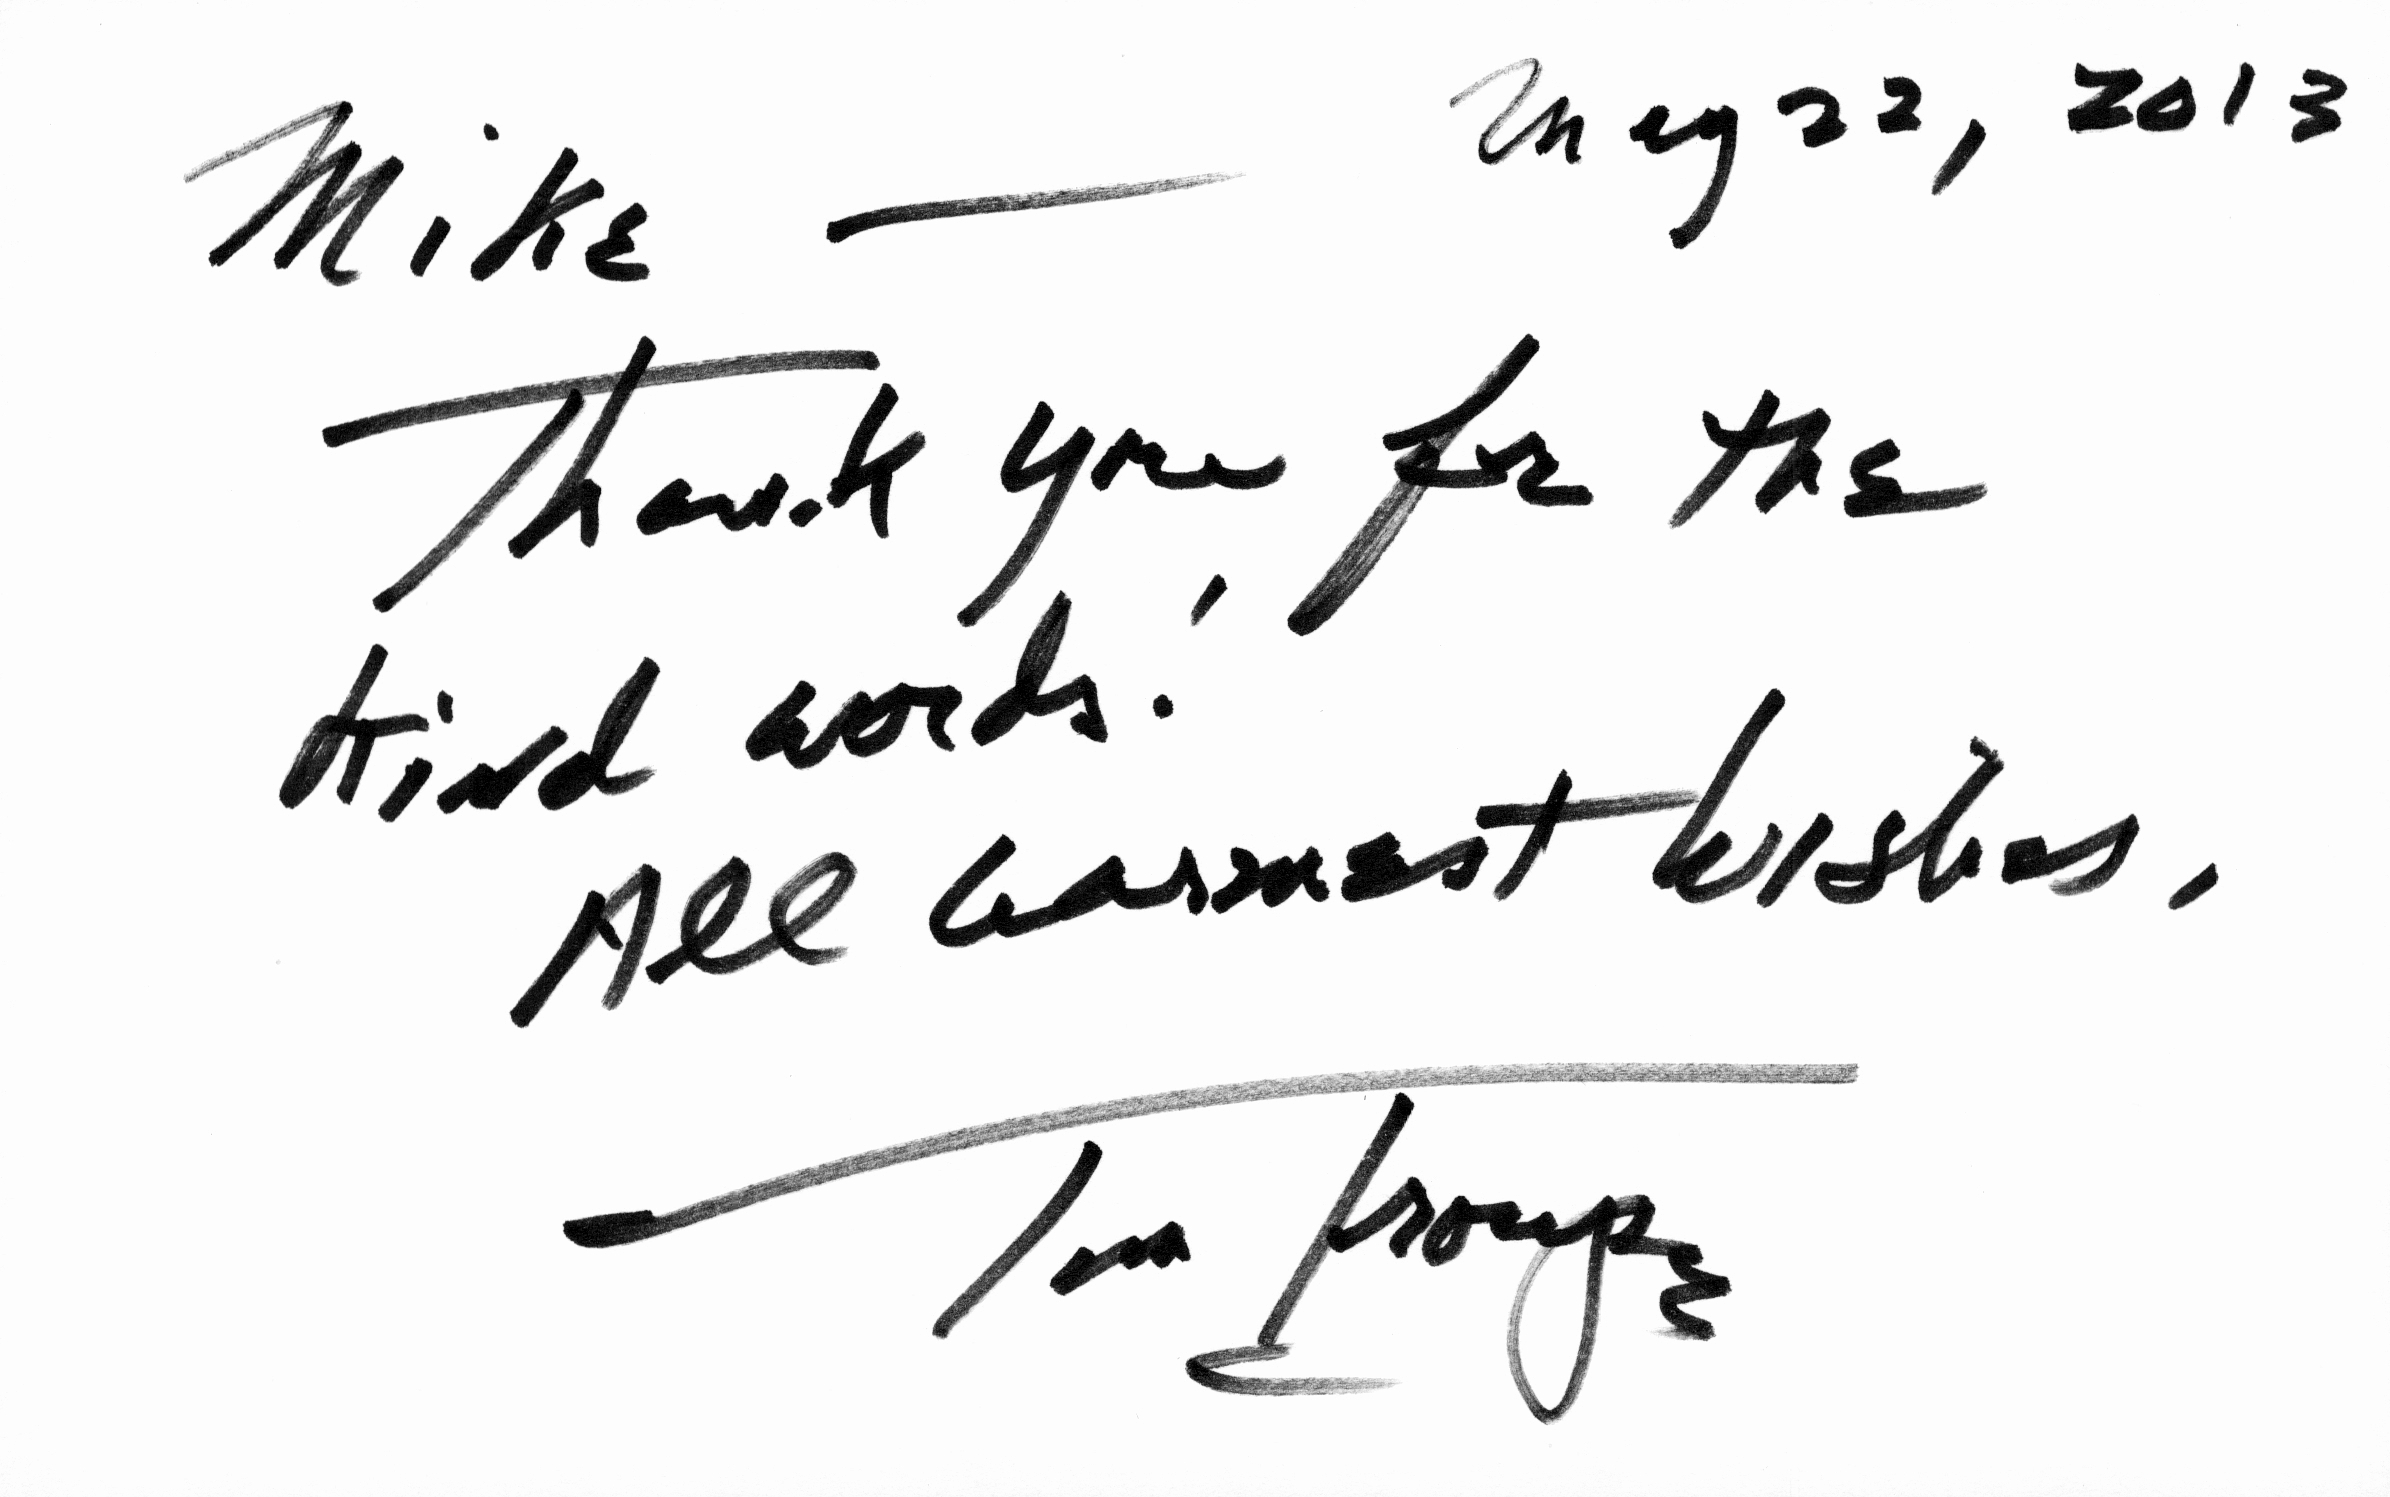 May 22, 2013
Mike —
Thank you for the
kind words!
All warmest wishes,
Tom Troupe